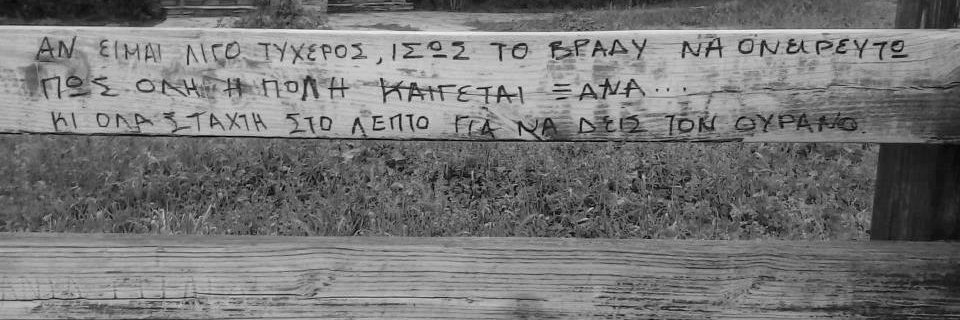 ΑΝ ΕΙΜΑΙ ΛΙΓΟ ΤΥΧΕΡΟΣ, ΙΣΩΣ ΤΟ ΒΡΑΔΥ ΝΑ ΟΝΕΙΡΕΥΤΩ
ΠΩΣ ΟΛΗ Η ΠΟΛΗ ΚΑΙΓΕΤΑΙ ΞΑΝΑ...
ΚΙ ΟΛΑ ΣΤΑΧΤΗ ΣΤΟ ΛΕΠΤΟ ΓΙΑ ΝΑ ΔΕΙΣ ΤΟΝ ΟΥΡΑΝΟ.